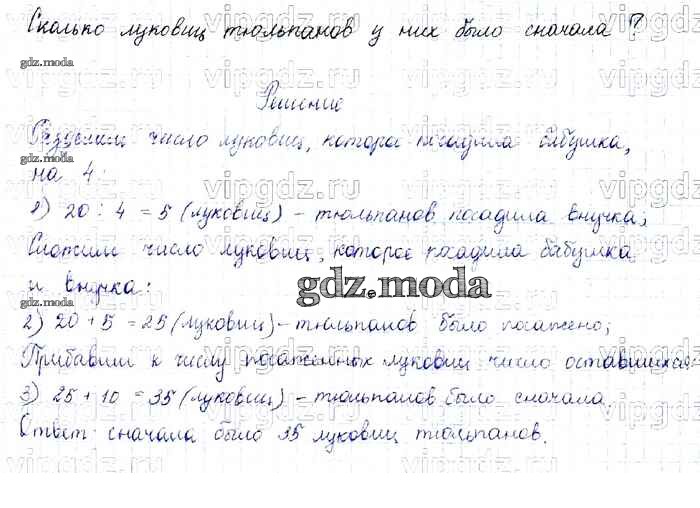 Сколько луковиц тюльпанов у них было сначала?
Решение
Разделим число луковиц, которое посадила бабушка,
на 4:
1) 20 : 4 = 5 (луковиц) - тюльпанов посадила внучка;
Сложим число луковиц, которое посадила бабушка
и внучка:
gdz.moda
2) 20 + 5 = 25 (луковиц) - тюльпанов было посажено;
Прибавим к числу посаженных луковиц число оставшихся:
3) 25 + 10 = 35 (луковиц) - тюльпанов было сначала.
Ответ: сначала было 35 луковиц тюльпанов.